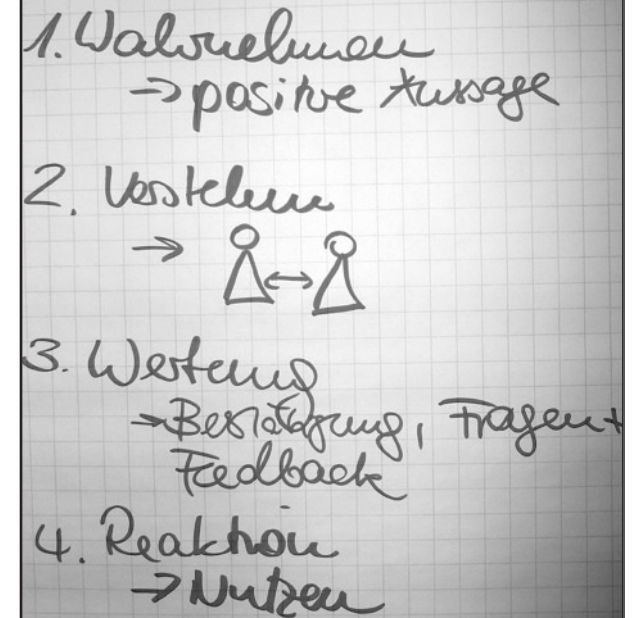 1. Wahrnehmen
→ positive Aussage
2. Verstehen
→
3. Wertung
→ Bestätigung, Fragen +
Feedback
4. Reaktion
→ Nutzen